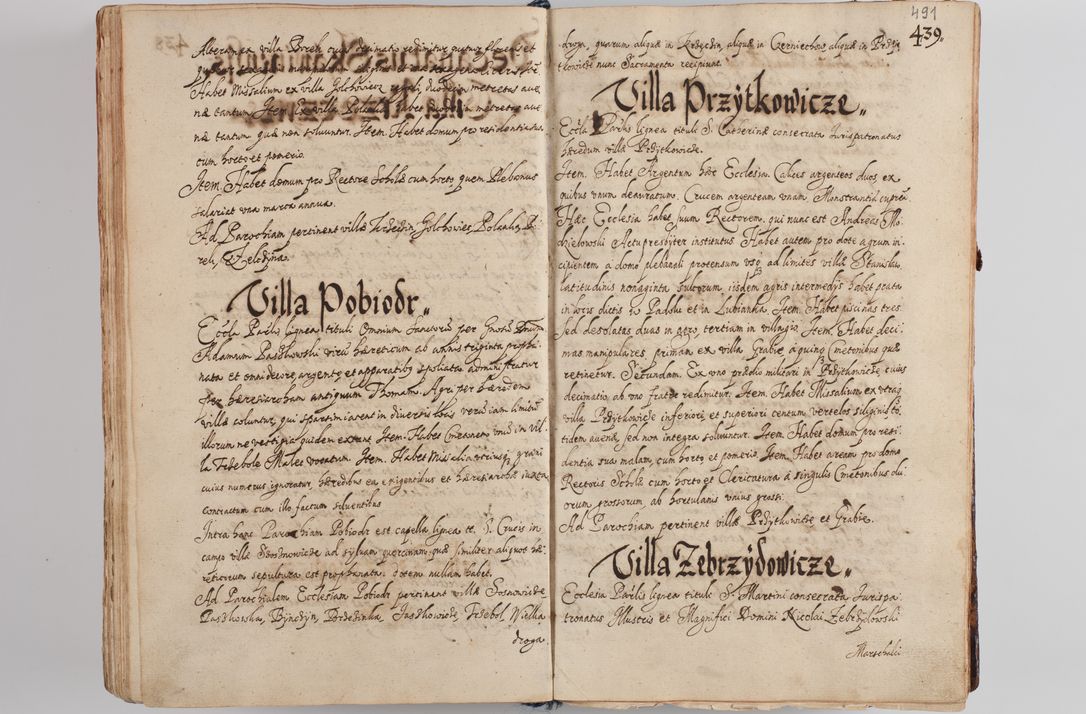 Alteram ex villa Borek cuius decimatio redimitur quatuor florenis et
Habet Missalium ex villa Golchowicz duodecim metretas aue
næ tantum. Item Ex villa Polanka habet duodecim metretas aue
næ tantum quæ non soluuntur. Item. Habet domum pro residentia sua
cum horto et pomerio.
Item. Habet domum pro Rectore Scholæ cum horto, quem Plebanus
salariat una marca annua.
Ad Parochiam pertinent villæ Krzeczin, Golchowiec, Polanka, Bo
rek, et Zelodzina.
Villa Pobiodr„
Eccła Parłis lignea tituli Omnium Sanctorum per Gnosum Dnum
Adamum Paszkowski virum hæreticum ab annis triginta propha
nata et omni decore, argento, et apparatibus spoliata administratur
per hæresiarcham antiquum Thomam. Agri per hæredem
villæ coluntur, qui sparsim iacent in diuersis locis verum iam limitum
illorum ne vestigia quidem extant. Item. Habet Cmetonem unum in vil
la Trzebole Males vocatum. Item. Habet Missalia utriusque grani
cuius numerus ignoratur, hæredibus ea exigentibus et hæresiarchæ iuxta
contractum cum illo factum soluentibus
Intra hanc Parochiam Pobiodr est capella lignea tt. S. Crucis in
campo villæ Sosnowicze ad syluam quercinam, quæ similiter aliquot hæ
reticorum sepultura est prophanata, dotem nullam habet.
Ad Parochialem Ecclesiam Pobiodr pertinent villæ Sosnowicze
Paszkowka, Bynczyn, Jaszkowicze, Trzebol, Wielka
droga
491
439.
droga, quarum aliquæ in Krzęczin, aliquæ in Czerniechow, aliquæ in Przy
tkowicze nunc Sacramenta recipiunt.
Villa Przÿtkowicze„
Eccła Parłis lignea tituli S. Catherinæ consecrata Iurispatronatus
hæredum villæ Przytkowicze.
Item. Habet Argentum hæc Ecclesia. Calices argenteos duos, ex
quibus unum deauratum. Crucem argenteam unam, Monstrantiam cupream
Hæc Ecclesia habet suum Rectorem, qui nunc est Andreas Mo
dzielowski Actu presbyter institutus Habet autem pro dote agrum in
cipientem a domo plebanali protensum usque ad limites villæ Stanisław
latitudinis nonaginta sulcorum iisdem agris intermedijs habet prata
in locis dictis w Padolu et in Lubianka. Item. Habet piscinas tres
sed desolatas duas in agro, tertiam in villagio. Item. Habet deci
mas manipulares, primam ex villa Grabie a quinque Cmetonibus quæ
retinetur. Secundam. Ex uno prædio militari in Przytkowicze cuius
decimatio, ab uno fratre redimitur. Item. Habet Missalium ex utraque
villa Przytkowicze inferiori, et superiori centum vertelos siliginis to
tidem auenæ, sed non integra soluuntur. Item. Habet domum pro resi
dentia sua malam, cum horto et pomerio. Item. Habet aream pro domo
Rectoris Scholæ cum horto et Clericatura a singulis Cmetonibus du
orum grossorum, ab hortulanis unius grossi.
Ad Parochiam pertinent villæ Przytkowicze et Grabie.
Villa Zebrzÿdowicze„
Ecclesia Parłis lignea tituli S. Martini consecrata Iurispa
tronatus Illustris et Magnifici Domini Nicolai Zebrzydowski
Marschalci